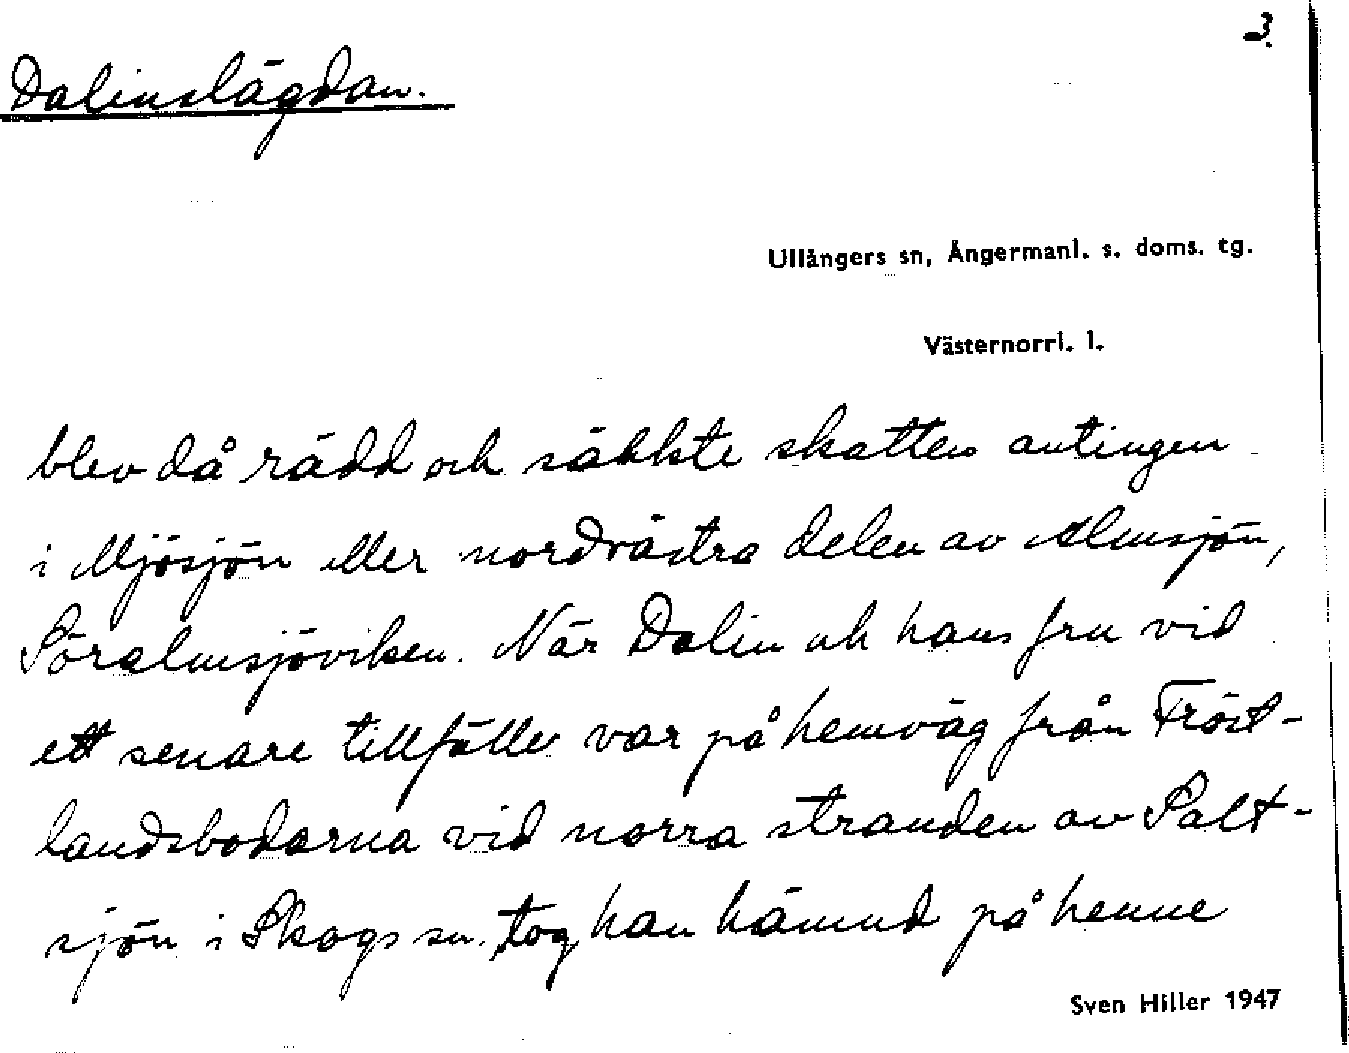 3.
Dalinslägdan.
Ullångers sn, Ångermanl. s. doms. tg.
Västernorrl. l.
blev då rädd och säkkte skatten antingen
i Mjösjön eller nordvästra delen av Almsjön,
Söralmsjöviken. När Dalin och hans fru vid
ett senare tillfälle var på hemväg från Fröst-
landsbodarna vid norra stranden av Salt-
sjön i Skogs sn. tog han hämnd på henne
Sven Hiller 1947